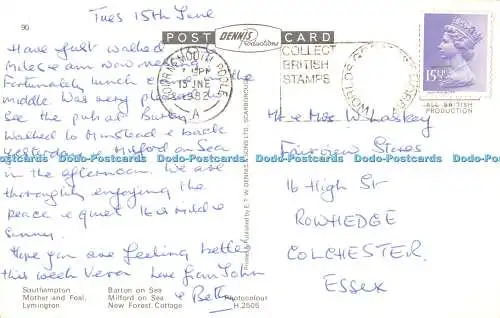 90
Tues 15th June
Have just walked
miles & am now having
Fortunately lunch
middle. Was very pleased
see the pub at Burley.
Walked to Minstead & back
yesterday & Milford on Sea
in the afternoon. We are
thoroughly enjoying the
peace & quiet
sunny.
Hope you are feeling better
this week Vera Love from John
& Beth
Southampton
Mother and Foal,
Lymington
Barton on Sea
Milford on Sea
New Forest Cottage
Photocolour
H.2505
POST
DENNIS
Productions
CARD
BOURNEMOUTH POOLE
PM
15 JNE
1982
A
COLLECT
BRITISH
STAMPS
WORLDS
15½P
ALL BRITISH
PRODUCTION
Printed & Published by E.T.W. DENNIS & SONS LTD., SCARBOROUGH
Mr & Mrs W Laskey
Fairview Stores
16 High St
ROWHEDGE
COLCHESTER
ESSEX
Dodo-Postcards Dodo-Postcards Dodo-Postcards Dodo-Postcards Dodo-Postcards